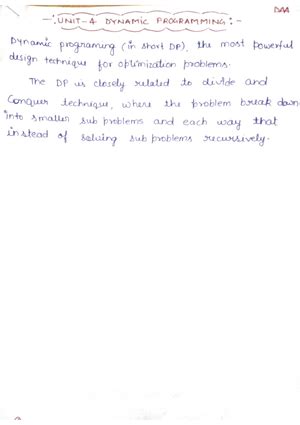 DAA
-: UNIT-4 DYNAMIC PROGRAMMING :-
Dynamic programing (in short DP), the most powerful
design technique for optimization problems.
The DP is closely related to divide and
Conquer technique, where the problem break down
into smaller sub problems and each way that
instead of solving sub problems recursively.